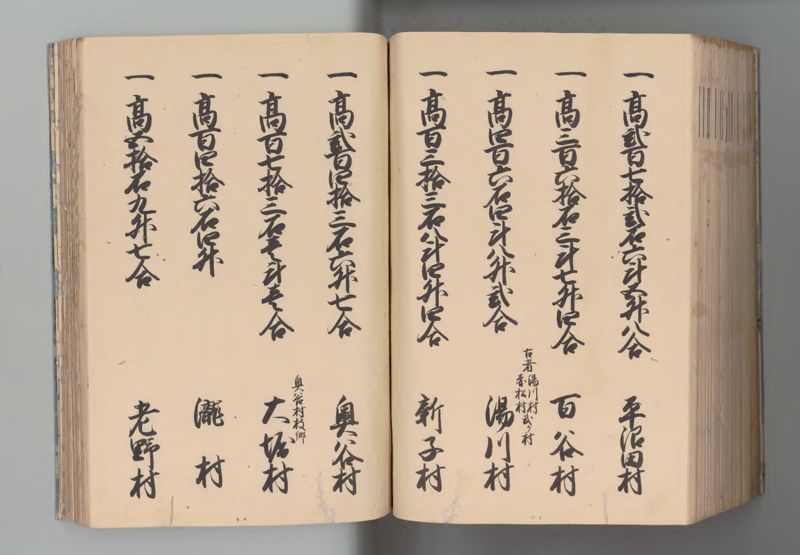 一 高弐百七拾弐石六斗五升八合 平沼田村
一 高三百六拾石三斗七升四合 百谷村
古者湯川村
赤松村弐ケ村
一 高四百六石四斗八升弐合 湯川村
一 高百三拾三石八斗四升四合 新子村
一 高弐百四拾三石六升七合 奥谷村
奥谷村枝郷
一 高百七拾三石壱斗壱合 大堀村
一 高百四拾六石四升 瀧村
一 高五拾石九升七合 老野村